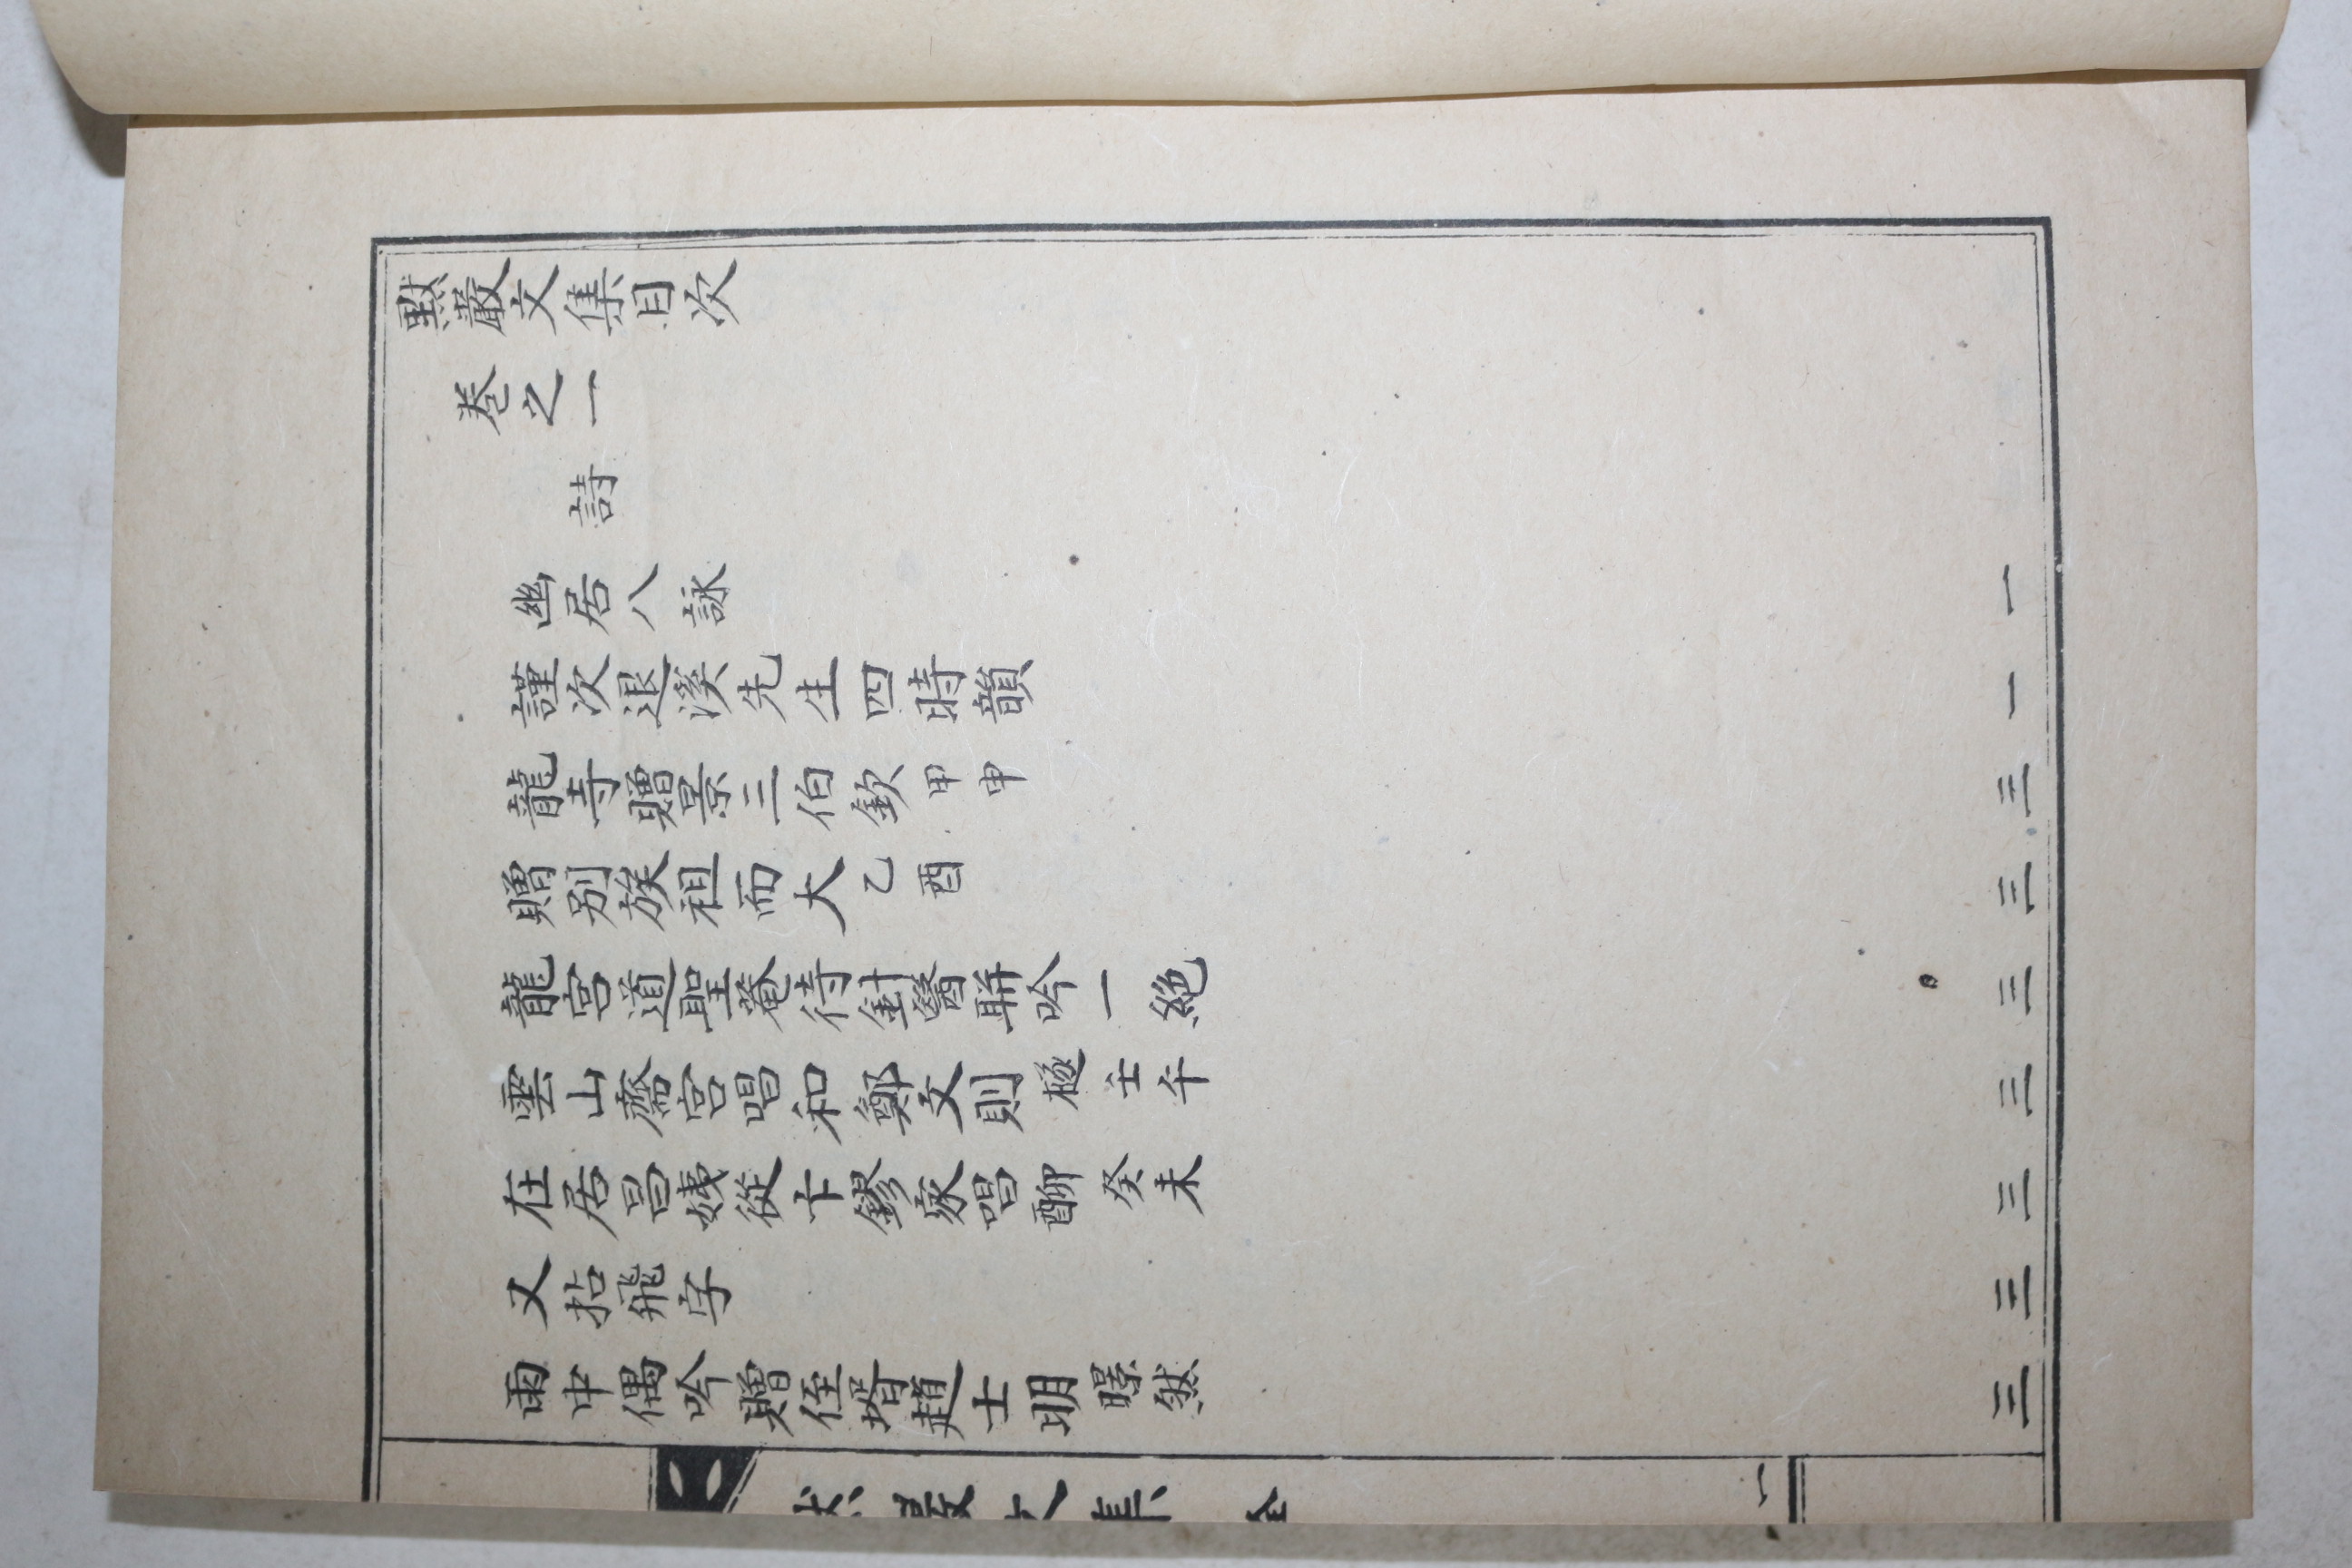 黙嚴文集目次
卷之一
詩
幽居八詠 一
謹次退溪先生四時韻 一
龍寺贈景三伯欽 甲申 三
贈別族祖而大 乙酉 三
龍宮道聖菴待針醫聯吟一絶 三
雲山齋宮唱和鄭文則 極 壬午 三
在居昌姨從卞鏐家唱酬 癸未 三
又拈飛字 三
雨中偶吟贈侄壻趙士明 暻然 三
文集 全
一